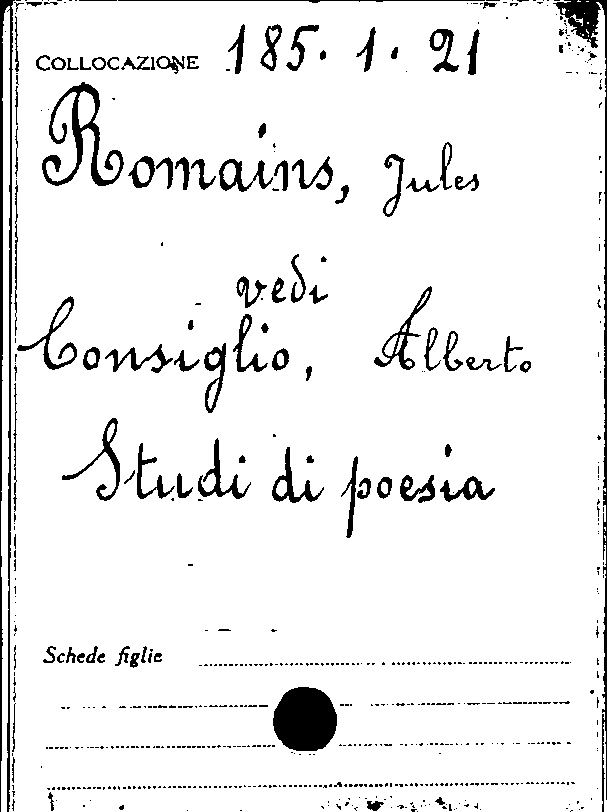 COLLOCAZIONE 185. 1. 21
Romains, Jules
vedi
Consiglio, Alberto
Studi di poesia
Schede figlie